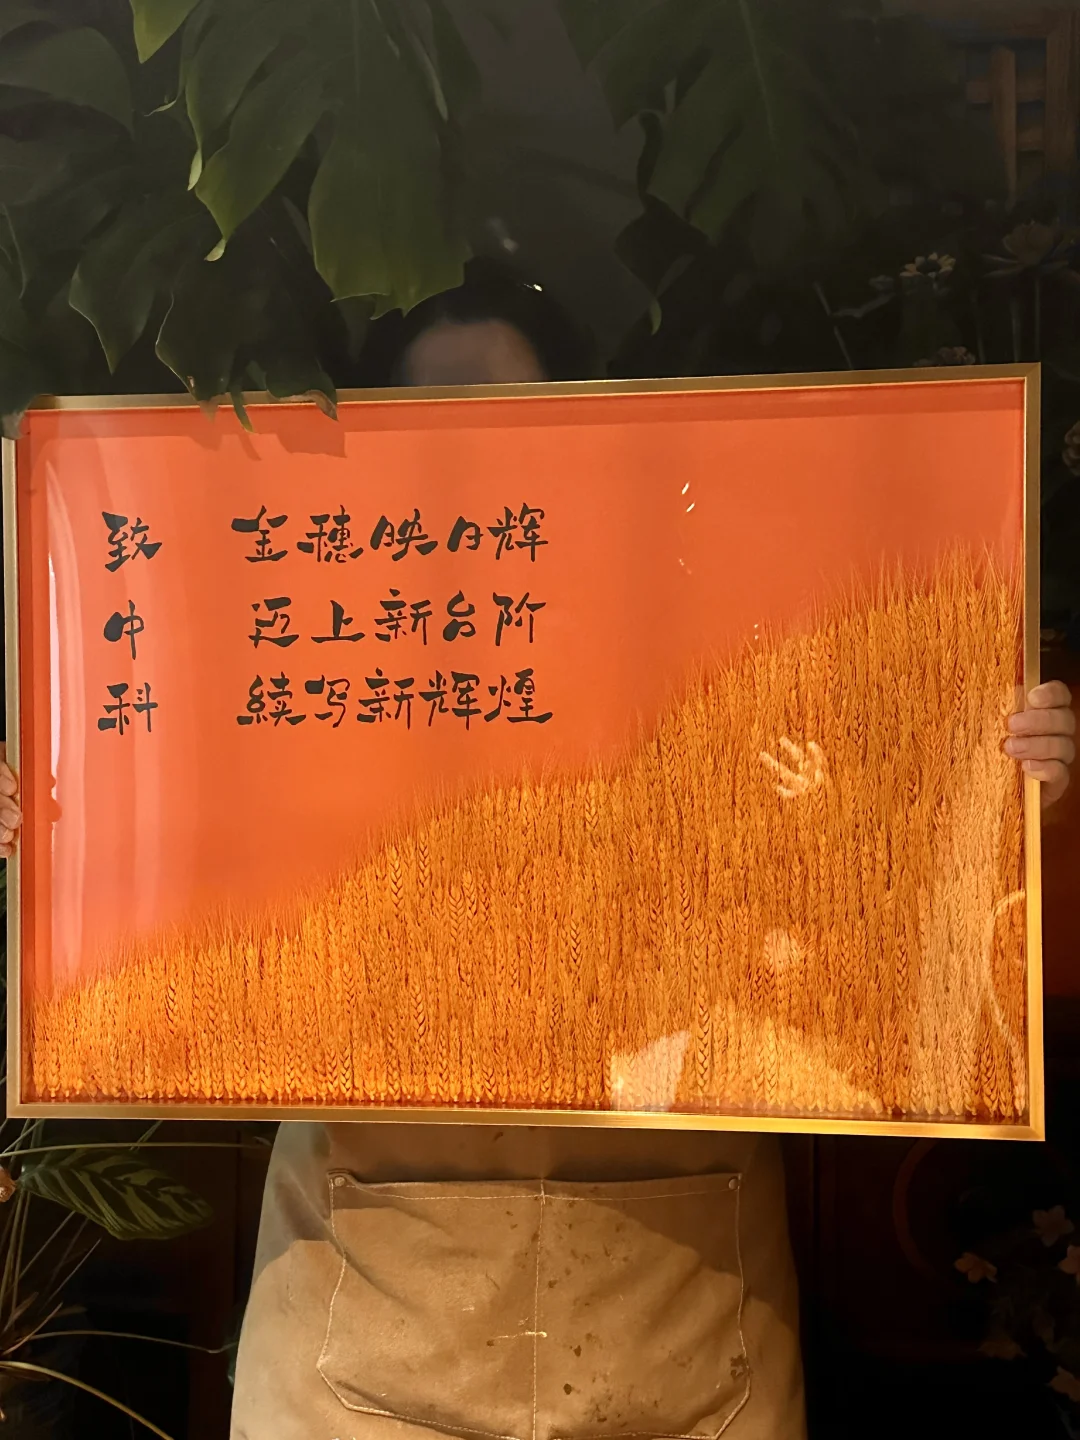 致 金穗映日辉
中 迈上新台阶
科 續写新辉煌